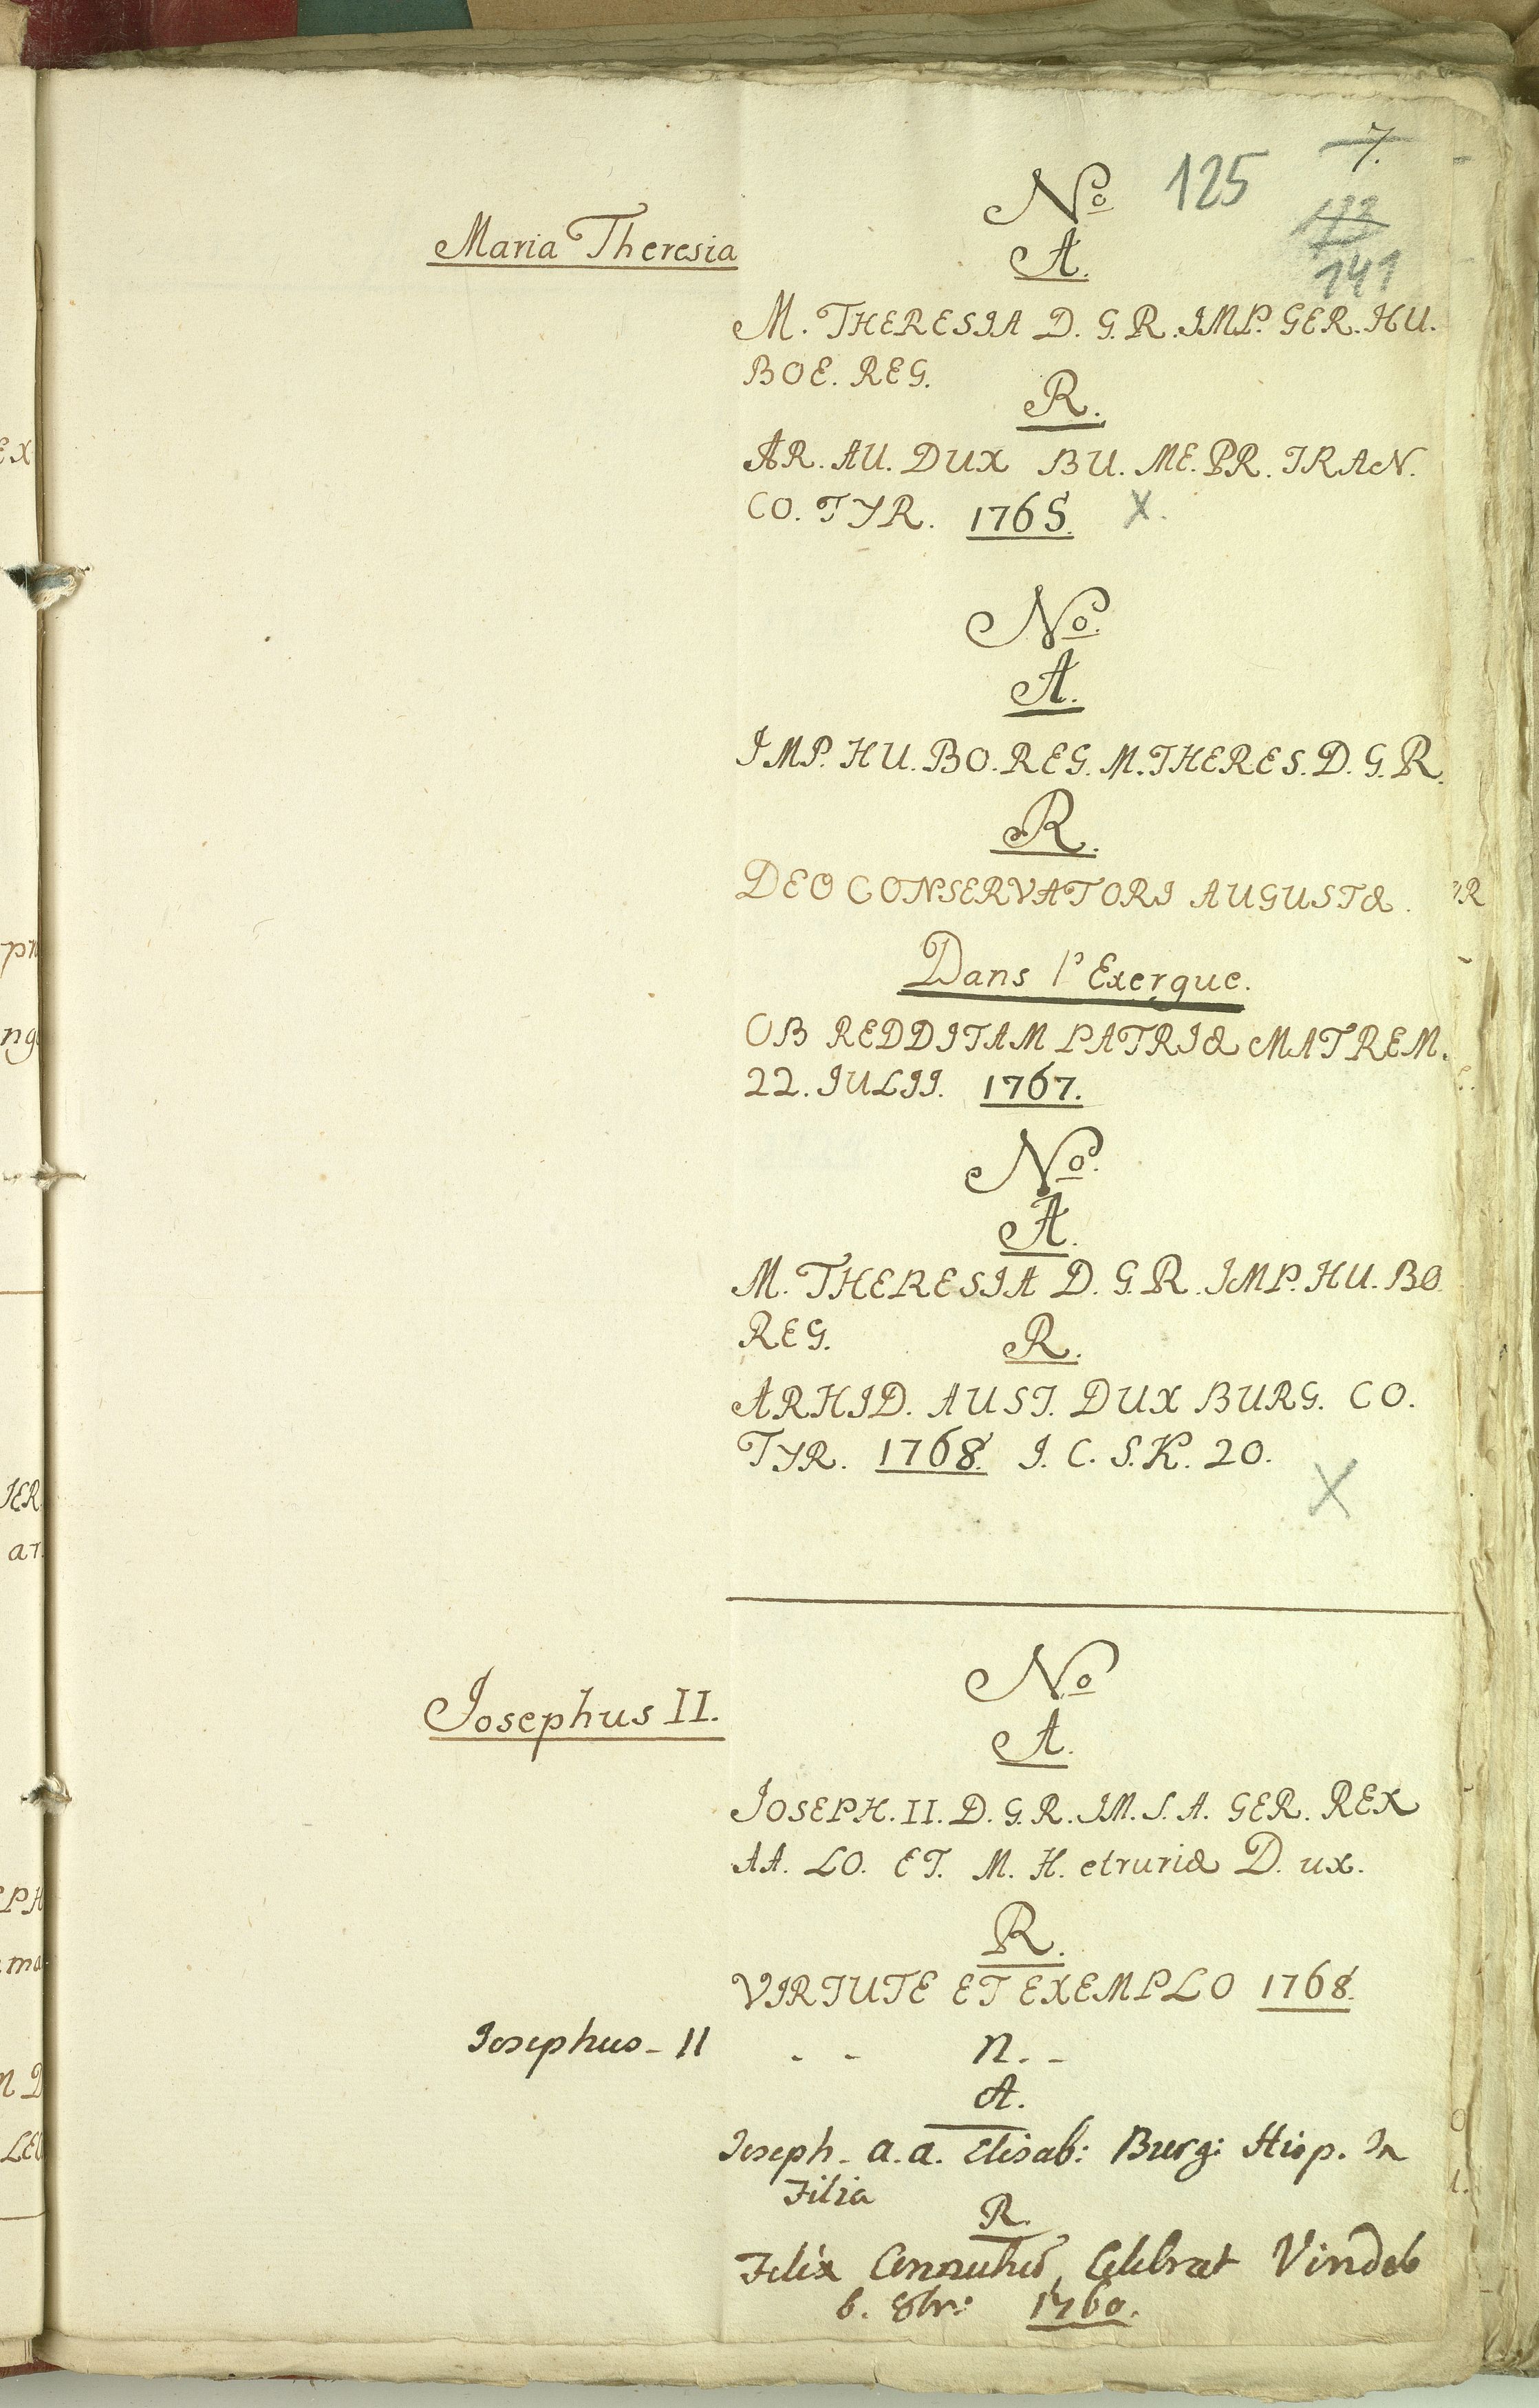 7.
No 125
122
141
Maria Theresia
A.
M. THERESIA D. G. R. IMP. GER. HU.
BOE. REG.
R.
AR. AU. DUX BU. ME. PR. TRAN.
CO. TYR. 1765. X.
No.
A.
IMP. HU. BO. REG. M. THERES. D. G. R.
R.
DEO CONSERVATORI AUGUSTÆ.
Dans l'Exergue.
OB REDDITAM PATRIÆ MATREM.
22. IULII. 1767.
No.
A.
M. THERESIA D. G. R. IMP. HU. BO
REG.
R.
ARHID. AUST. DUX BURG. CO.
TYR. 1768. I. C. S. K. 20.
X
No
Josephus II.
A.
JOSEPH. II. D. G. R. IM. S. A. GER. REX
AA. LO. ET. M. H. etruriæ D. ux.
R.
VIRTUTE ET EXEMPLO 1768.
Josephus - II - - n. -
A.
Joseph - a. a. Elisab: Burg: Hisp. In
Filia
R.
Felix Connubió Celebrat Vindob
6. 8br: 1760.